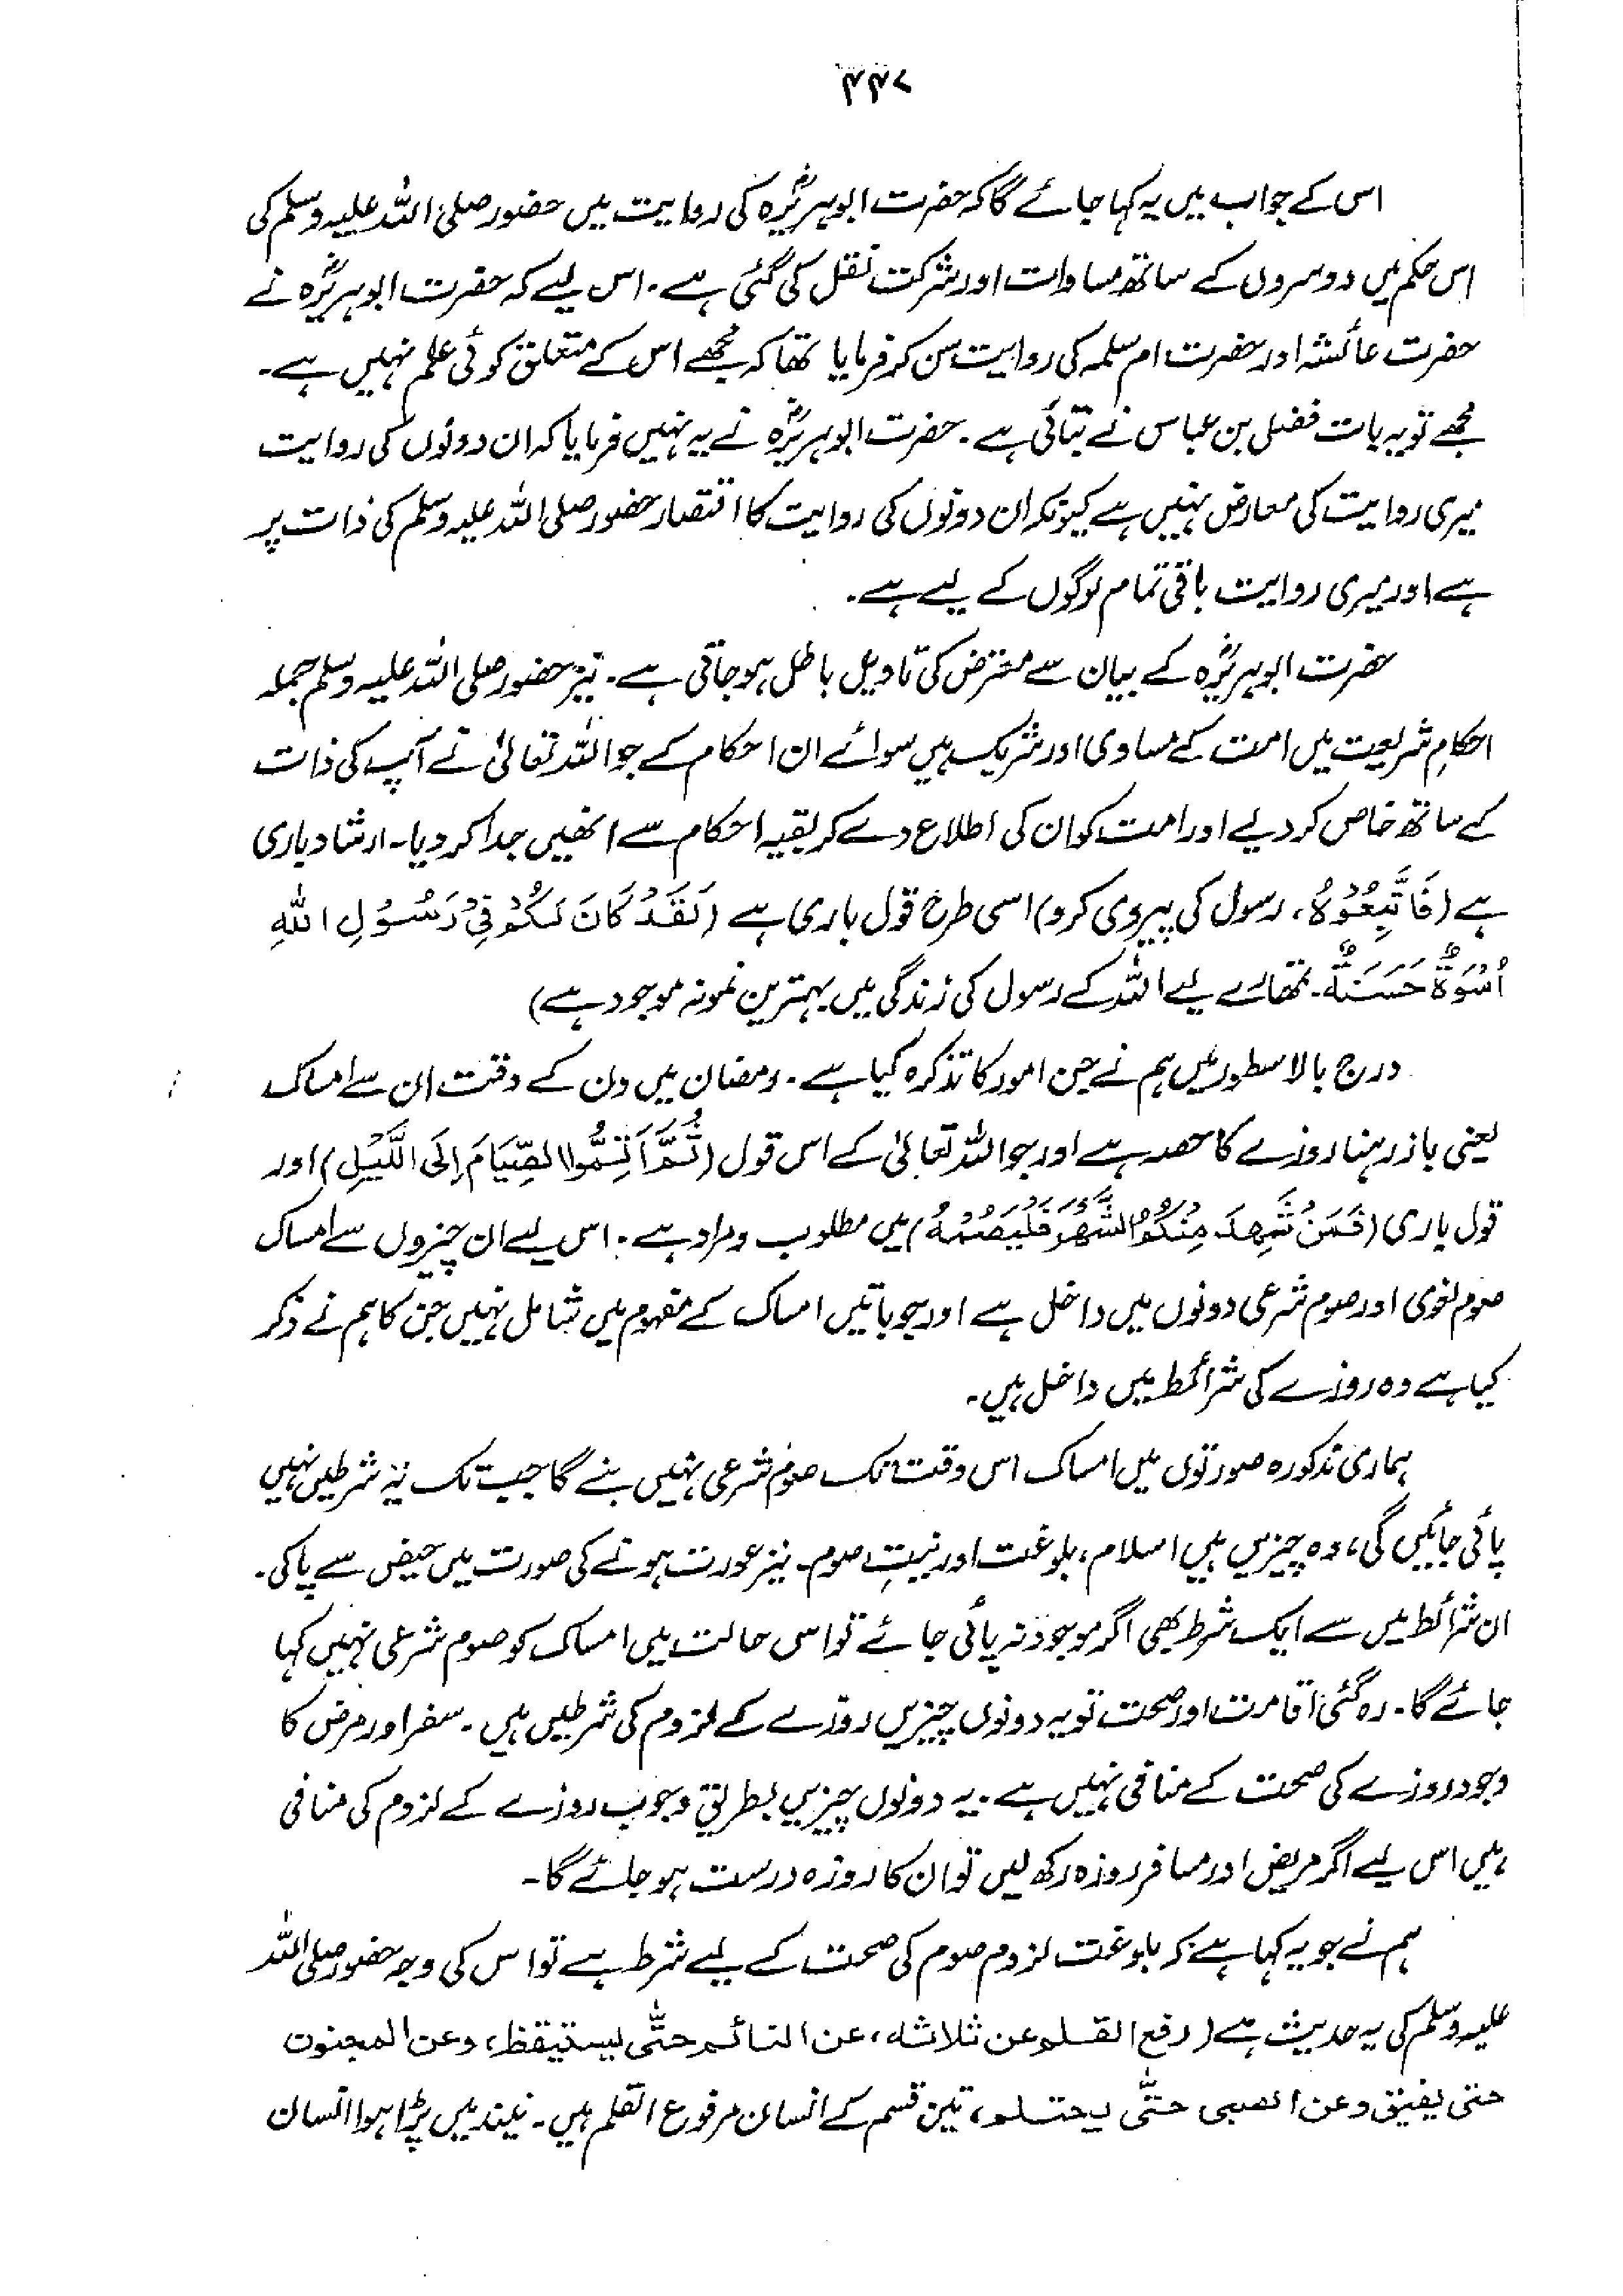 ۴۴۷
اس کے جواب میں یہ کہا جائے گا کہ حضرت ابوہریرہؓ کی روایت میں حضور صلی اللہ علیہ وسلم کی
اس حکم میں دوسروں کے ساتھ مساوات اور شرکت نقل کی گئی ہے۔ اس لیے کہ حضرت ابوہریرہؓ نے
حضرت عائشہ اور حضرت ام سلمہ کی روایت سن کر فرمایا تھا کہ مجھے اس کے متعلق کوئی علم نہیں ہے۔
مجھے تو یہ بات فضل بن عباس نے بتائی ہے۔ حضرت ابوہریرہؓ نے یہ نہیں فرمایا کہ ان دونوں کی روایت
میری روایت کی معارض نہیں ہے کیونکہ ان دونوں کی روایت کا اقتصار حضور صلی اللہ علیہ وسلم کی ذات پر
ہے اور میری روایت باقی تمام لوگوں کے لیے ہے۔
حضرت ابوہریرہؓ کے بیان سے معترض کی تاویل باطل ہو جاتی ہے۔ نیز حضور صلی اللہ علیہ وسلم جملہ
احکامِ شریعت میں امت کے مساوی اور شریک ہیں سوائے ان احکام کے جو اللہ تعالیٰ نے آپ کی ذات
کے ساتھ خاص کر دیے اور امت کو ان کی اطلاع دے کر بقیہ احکام سے انھیں جدا کر دیا۔ ارشاد باری
ہے (فَاتَّبِعُوْهُ، رسول کی پیروی کرو) اسی طرح قول باری ہے (لَقَدْ كَانَ لَكُمْ فِيْ رَسُوْلِ اللّٰهِ
اُسْوَةٌ حَسَنَةٌ۔ تمھارے لیے اللہ کے رسول کی زندگی میں بہترین نمونہ موجود ہے)
درج بالا سطور میں ہم نے جن امور کا تذکرہ کیا ہے۔ رمضان میں دن کے وقت ان سے امساک
یعنی باز رہنا روزے کا حصہ ہے اور جو اللہ تعالیٰ کے اس قول (ثُمَّ اَتِمُّوا الصِّيَامَ اِلَى اللَّيْلِ) اور
قول باری (فَمَنْ شَهِدَ مِنْكُمُ الشَّهْرَ فَلْيَصُمْهُ) میں مطلوب و مراد ہے۔ اس لیے ان چیزوں سے امساک
صوم لغوی اور صوم شرعی دونوں میں داخل ہے اور جو باتیں امساک کے مفہوم میں شامل نہیں جن کا ہم نے ذکر
کیا ہے وہ روزے کی شرائط میں داخل ہیں۔
ہماری مذکورہ صورتوں میں امساک اس وقت تک صوم شرعی نہیں بنے گا جب تک یہ شرطیں نہیں
پائی جائیں گی، وہ چیزیں ہیں اسلام، بلوغت اور نیتِ صوم۔ نیز عورت ہونے کی صورت میں حیض سے پاکی۔
ان شرائط میں سے ایک شرط بھی اگر موجود نہ پائی جائے تو اس حالت میں امساک کو صوم شرعی نہیں کہا
جائے گا۔ رہ گئی اقامت اور صحت تو یہ دونوں چیزیں روزے کے لزوم کی شرطیں ہیں۔ سفر اور مرض کا
وجود روزے کی صحت کے منافی نہیں ہے۔ یہ دونوں چیزیں بطریق وجوب روزے کے لزوم کی منافی
ہیں اس لیے اگر مریض اور مسافر روزہ رکھ لیں تو ان کا روزہ درست ہو جائے گا۔
ہم نے جو یہ کہا ہے کہ بلوغت لزوم صوم کی صحت کے لیے شرط ہے تو اس کی وجہ حضور صلی اللہ
علیہ وسلم کی یہ حدیث ہے (رفع القلم عن ثلاثہ، عن النائم حتّٰی یستیقظ، وعن المجنون
حتی یفیق وعن الصبی حتّٰی یحتلم، تین قسم کے انسان مرفوع القلم ہیں۔ نیند میں پڑا ہوا انسان